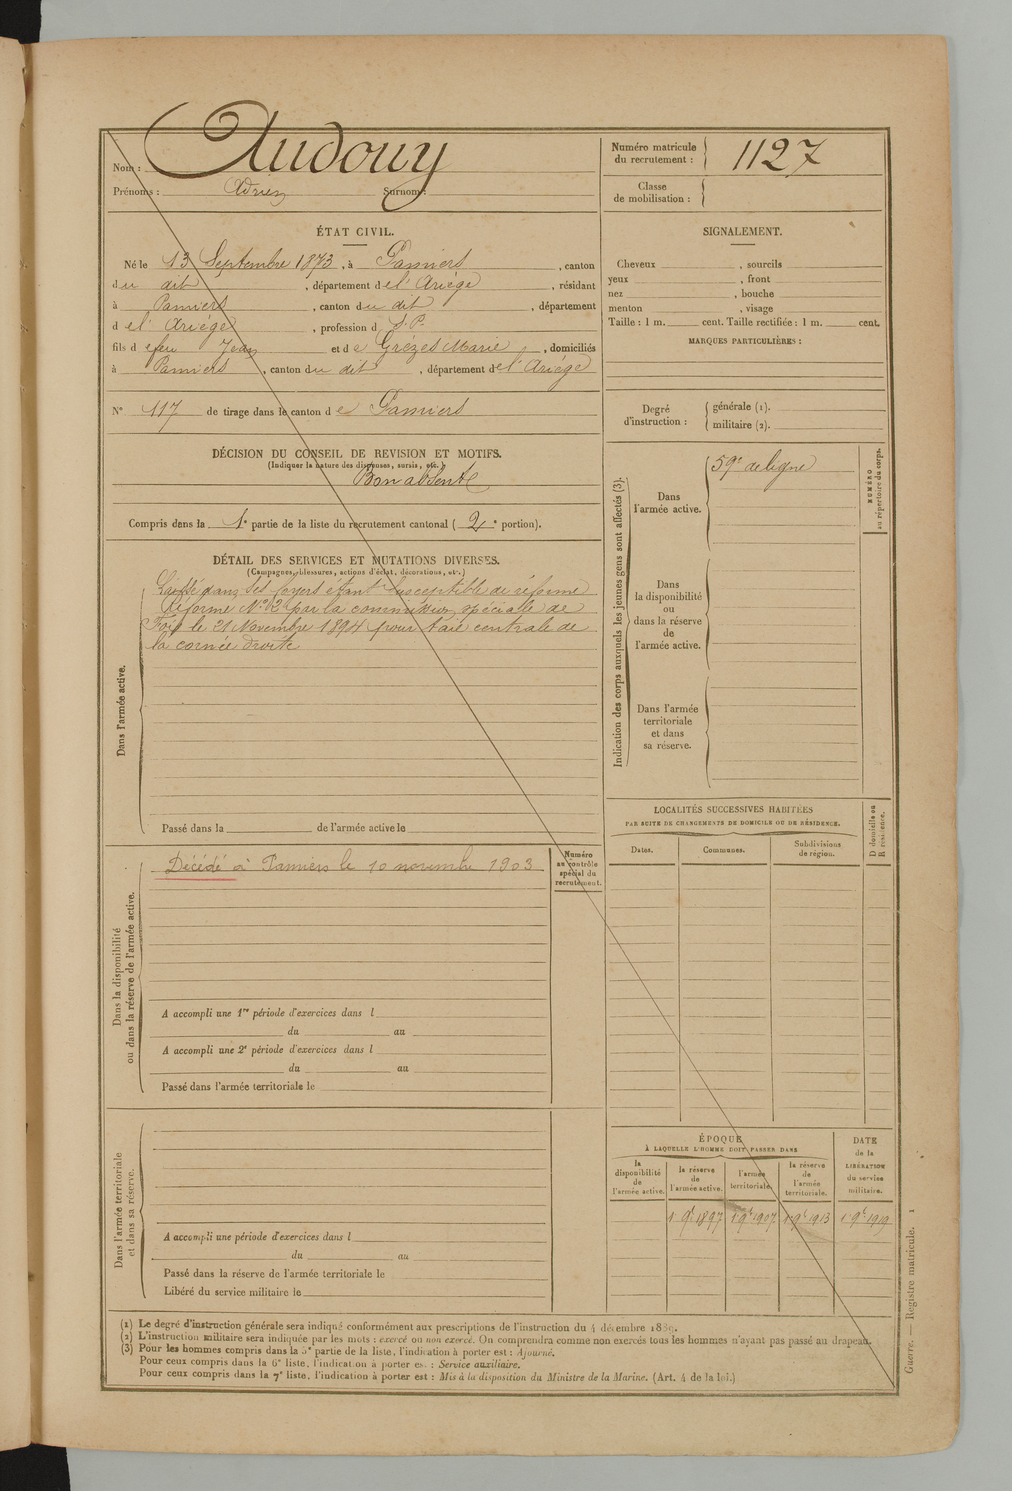 Nom : Audouy
Prénoms : Adrien Surnom :
Numéro matricule du recrutement : 1127
Classe de mobilisation :
ÉTAT CIVIL.
Né le 13 Septembre 1873, à Pamiers, canton
du dit, département de l'Ariège, résidant
à Pamiers, canton du dit, département
de l'Ariège, profession d S.P.
fils de feu Jean et de Grézes Marie, domiciliés
à Pamiers, canton du dit, département de l'Ariège
N° 117 de tirage dans le canton de Pamiers
DÉCISION DU CONSEIL DE REVISION ET MOTIFS.
(Indiquer la nature des dispenses, sursis, etc.)
Bon absent
Compris dans la 1e partie de la liste du recrutement cantonal (2e portion).
DÉTAIL DES SERVICES ET MUTATIONS DIVERSES.
(Campagnes, blessures, actions d'éclat, décorations, etc.)
Dans l'armée active.
Laissé dans ses foyers étant susceptible de réforme
Réformé N° 2 par la commission spéciale de
Foix le 21 Novembre 1894 pour taie centrale de
la cornée droite
Passé dans la de l'armée active le
Dans la disponibilité
ou dans la réserve de l'armée active.
Décédé à Pamiers le 10 novembre 1903
Numéro
au contrôle
spécial du
recrutement.
A accompli une 1re période d'exercices dans l
du au
A accompli une 2e période d'exercices dans l
du au
Passé dans l'armée territoriale le
Dans l'armée territoriale
et dans sa réserve.
A accompli une période d'exercices dans l
du au
Passé dans la réserve de l'armée territoriale le
Libéré du service militaire le
SIGNALEMENT.
Cheveux , sourcils
yeux , front
nez , bouche
menton , visage
Taille : 1 m. cent. Taille rectifiée : 1 m. cent.
MARQUES PARTICULIÈRES :
Degré d'instruction :
générale (1).
militaire (2).
Indication des corps auxquels les jeunes gens sont affectés (3).
Dans
l'armée active.
59e de ligne
NUMÉRO
au répertoire du corps.
Dans
la disponibilité
ou
dans la réserve
de
l'armée active.
Dans l'armée
territoriale
et dans
sa réserve.
LOCALITÉS SUCCESSIVES HABITÉES
PAR SUITE DE CHANGEMENTS DE DOMICILE OU DE RÉSIDENCE.
Dates. Communes. Subdivisions de région.
D domicile ou
R résidence.
ÉPOQUE
À LAQUELLE L'HOMME DOIT PASSER DANS
la disponibilité de l'armée active.
la réserve de l'armée active.
l'armée territoriale.
la réserve de l'armée territoriale.
DATE de la LIBÉRATION du service militaire.
1 9bre 1897 1 9bre 1907 1 9bre 1913 1 9bre 1919
(1) Le degré d'instruction générale sera indiqué conformément aux prescriptions de l'instruction du 4 décembre 1889.
(2) L'instruction militaire sera indiquée par les mots : exercé ou non exercé. On comprendra comme non exercés tous les hommes n'ayant pas passé au drapeau.
(3) Pour les hommes compris dans la 5e partie de la liste, l'indication à porter est : Ajourné.
Pour ceux compris dans la 6e liste, l'indication à porter est : Service auxiliaire.
Pour ceux compris dans la 7e liste, l'indication à porter est : Mis à la disposition du Ministre de la Marine. (Art. 4 de la loi.)
Guerre. — Registre matricule. 1